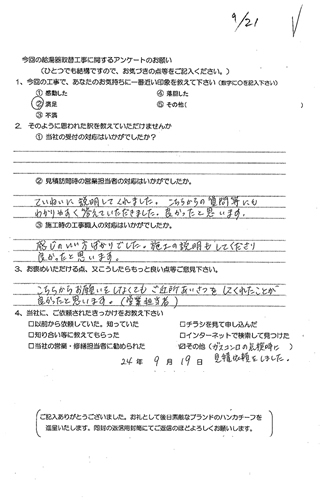 9/21
今回の給湯器取替工事に関するアンケートのお願い
（ひとつでも結構ですので、お気づきの点等をご記入ください。）
1、今回の工事で、あなたのお気持ちに一番近い印象を教えて下さい（数字に○を記入下さい）
①感動した ④落胆した
②満足 ⑤その他( )
③不満
2．そのように思われた訳を教えていただけませんか
①当社の受付の対応はいかがでしたか？
②見積訪問時の営業担当者の対応はいかがでしたか。
ていねいに説明してくれました。こちらからの質問等にも
わかりやすく答えていただきました。良かったと思います。
③施工時の工事職人の対応はいかがでしたか。
感じのいい方ばかりでした。施工の説明もしてくださり
良かったと思います。
3、お褒めいただける点、又こうしたらもっと良い点等ご意見下さい。
こちらからお願いをしなくてもご近所あいさつをしてくれたことが
良かったと思います。(営業担当者)
4、当社に、ご依頼されたきっかけをお教え下さい
□以前から依頼していた。知っていた □チラシを見て申し込んだ
□知り合い等に教えてもらった □インターネットで検索して見つけた
□当社の営業・修繕担当者に勧められた ☑その他(ガスコンロの点検時に)
見積依頼をしました。
24年 9月 19日
ご記入ありがとうございました。お礼として後日素敵なブランドのハンカチーフを
進呈いたします。同封の返信用封筒にてご返信のほどよろしくお願いします。